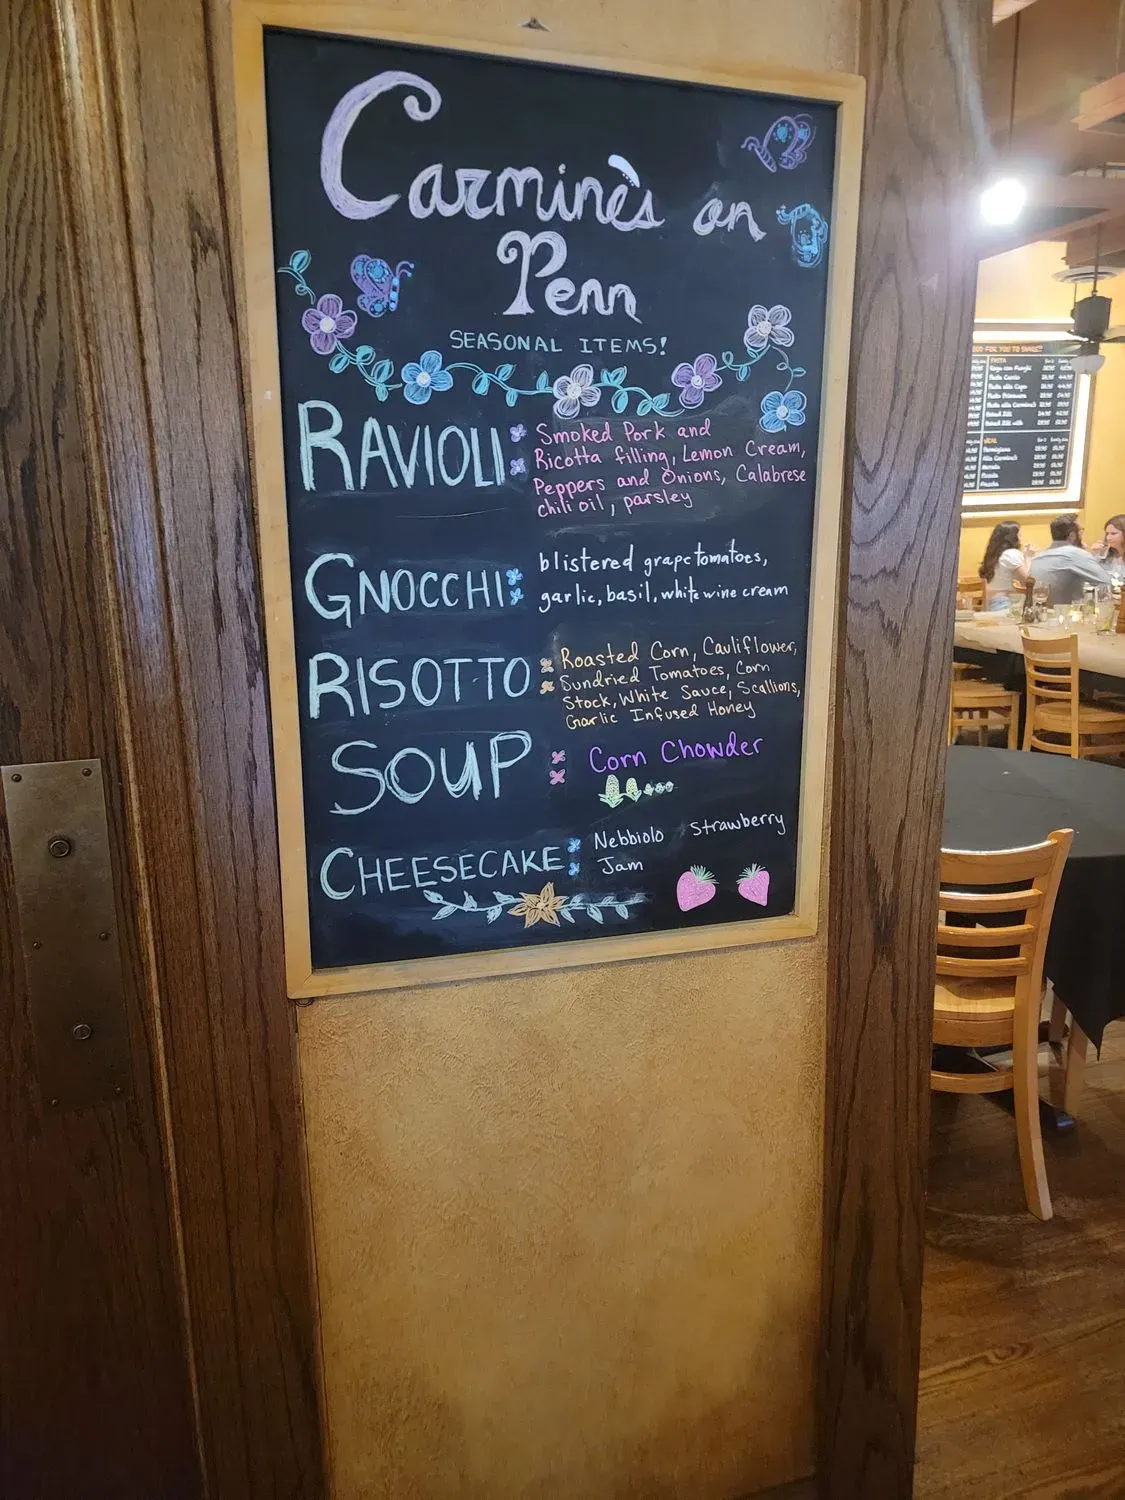 Carmine's on
Penn
SEASONAL ITEMS!
RAVIOLI: Smoked Pork and
Ricotta filling, Lemon Cream,
Peppers and Onions, Calabrese
chili oil, parsley
GNOCCHI: blistered grape tomatoes,
garlic, basil, white wine cream
RISOTTO: Roasted Corn, Cauliflower,
Sundried Tomatoes, Corn
Stock, White Sauce, Scallions,
Garlic Infused Honey
SOUP: Corn Chowder
CHEESECAKE: Nebbiolo Strawberry
Jam
FOR YOU TO SHARE!!
PASTA
VEAL